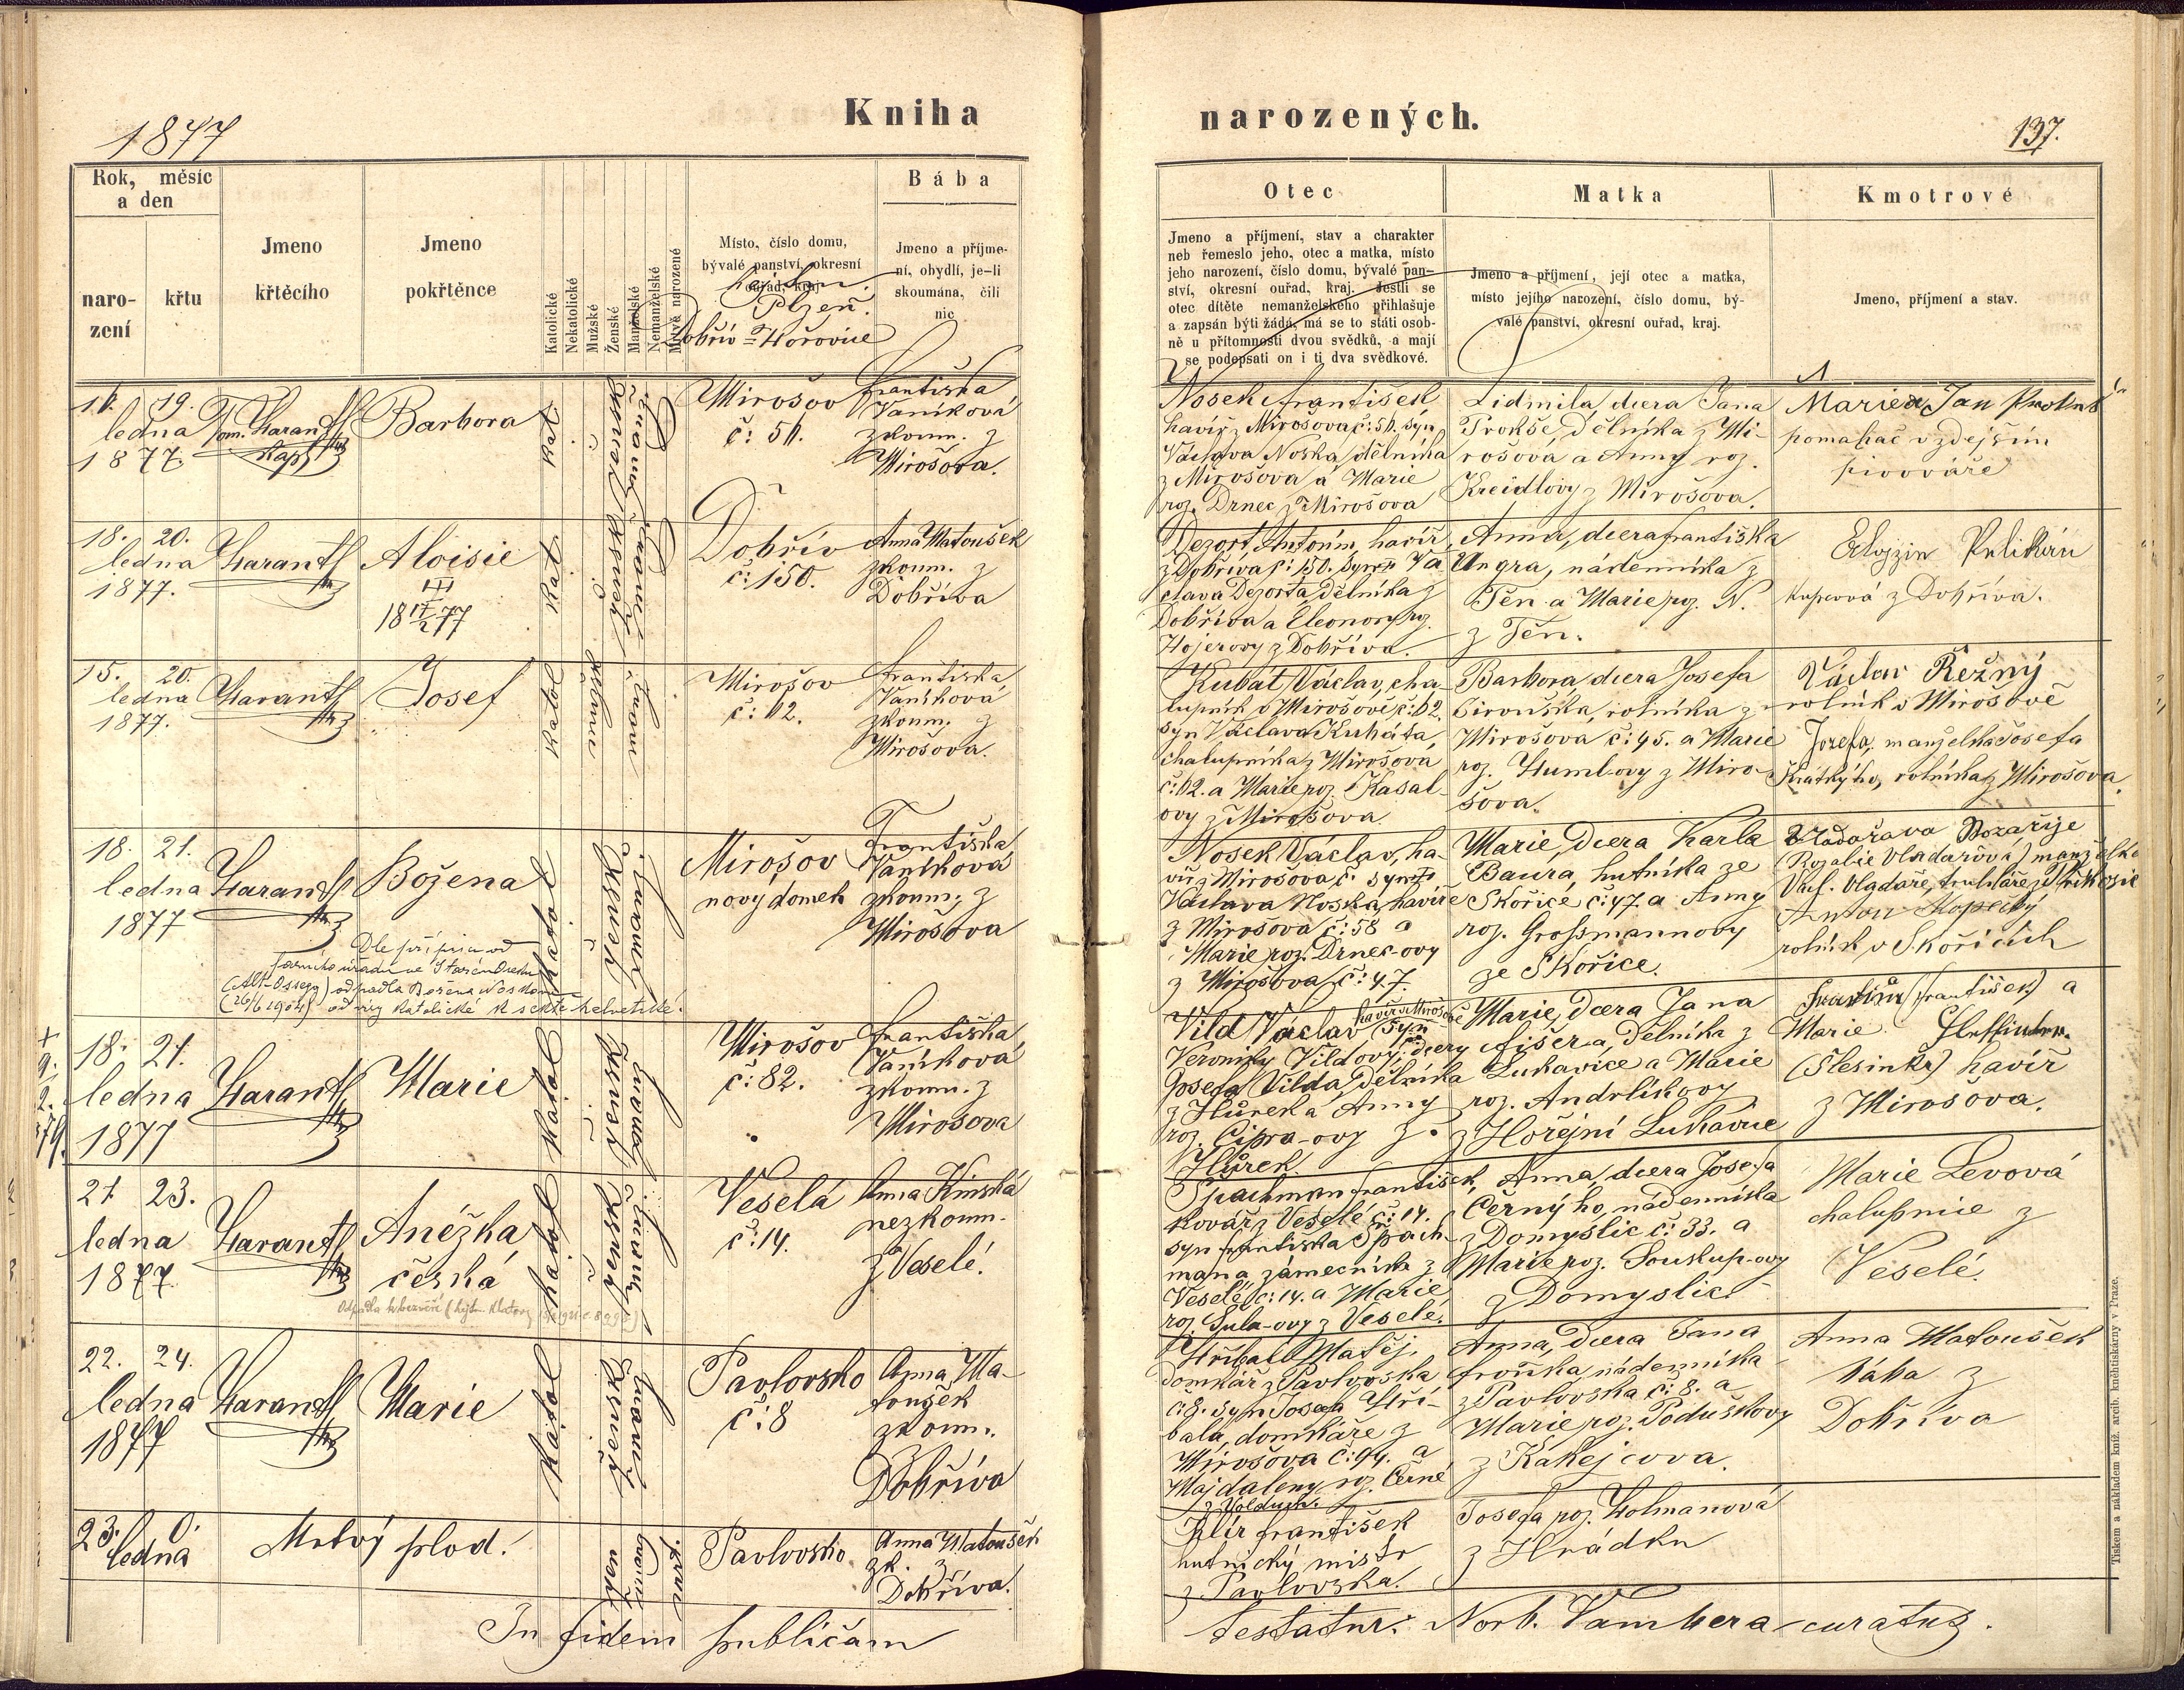 1877
Kniha
narozených.
137.
Rok, měsíc
a den
naro-
zení
křtu
Jmeno
křtěcího
Jmeno
pokřtěnce
Katolické
Nekatolické
Mužské
Ženské
Manželské
Nemanželské
Mrtvě narozené
Místo, číslo domu,
bývalé panství, okresní
ouřad, kraj.
Plzeň.
Dobřív = Hořovice
Bába
Jmeno a příjme-
ní, obydlí, je-li
skoumána, čili
nic
Otec
Jmeno a příjmení, stav a charakter
neb řemeslo jeho, otec a matka, místo
jeho narození, číslo domu, bývalé pan-
ství, okresní ouřad, kraj. Jestli se
otec dítěte nemanželského přihlašuje
a zapsán býti žádá, má se to státi osob-
ně u přítomnosti dvou svědků, a mají
se podepsati on i ti dva svědkové.
Matka
Jmeno a příjmení, její otec a matka,
místo jejího narození, číslo domu, bý-
valé panství, okresní ouřad, kraj.
Kmotrové
Jmeno, příjmení a stav.
19.
ledna
1877.
Tom. Harant
kap.
Barbora
Kat.
ženské
Mirošov
č: 51.
Františka
Vaníková
zkoum. z
Mirošova.
Nosek František
havíř z Mirošova č: 51. syn
Václava Noska, dělníka
z Mirošova a Marie
roz. Drnec z Mirošova
Lidmila, dcera Jana
Trokše, dělníka z Mi-
rošova a Anny roz.
Kreidlovy z Mirošova.
Marie a Jan
pomahač v zdejším
pivováře
18. 20.
ledna
1877.
Harant
Aloisie
III
18 17/2 77
Kat
ženské
Dobřív
č: 150.
Anna Matoušek
zkoum. z
Dobříva
Dezort Antonín, havíř
z Dobříva č: 150. syn Vá
clava Dezorta, dělníka z
Dobříva a Eleonory roz.
Hojerovy z Dobříva.
Anna, dcera Františka
Ungra, nádenníka z
Těn a Marie roz. N.
z Těn.
Pelikán
z Dobříva.
15. 20.
ledna
1877.
Harant
Josef
Katol
Mirošov
č: 62.
Františka
Vaníková
zkoum. z
Mirošova.
Kubát Václav, cha-
lupník v Mirošově č: 62.
syn Václava Kubáta,
chalupníka z Mirošova
č: 62. a Marie roz. Kasal-
ovy z Mirošova
Barbora dcera Josefa
rolníka z
Mirošova č: 45. a Marie
roz. Huml-ovy z Miro-
šova.
Václav Řežný
rolník v Mirošově
Josefa, manželka Josefa
Krátkýho, rolníka z Mirošova.
18. 21.
ledna
1877
Harant
Božena
Katol
ženské
Dle přípisu od
farního úřadu ve Starém Oseku
(Alt-Ossegg) odpadla Božena Nosková
(26/6 1904) od víry katolické k sektě helvetické.
Mirošov
nový domek
Františka
Vaníková
zkoum. z
Mirošova
Nosek Václav, ha-
víř z Mirošova č. syn
Václava Noska, havíře
z Mirošova č: 58 a
Marie roz. Drnec-ovy
z Mirošova č: 47.
Marie, dcera Karla
Baura, hutníka ze
Skořice č: 47. a Anny
roz. Grossmannovy
ze Skořice.
Vladařova Rozařije
(Rozalie Vladařová) manželka
Vladaře, truhláře ze
Anton Kopecký
rolník v Skořicích
18. 21.
ledna
1877
Harant
Marie
Katol
ženské
Mirošov
č: 82.
Františka
Vaníková
zkoum. z
Mirošova
Vild Václav havíř v Mirošově syn
Veroniky Vildovy, dcery
Josefa Vilda, dělníka
z Hůrek a Anny
roz. Cipra-ovy z
Hůrek
Marie, dcera Jana
Fišera, dělníka z
Lukavice a Marie
roz. Andrlíkovy
z Hořejní Lukavice
(František) a
Marie
(Šlesinkr) havíř
z Mirošova.
21 23.
ledna
1877
Harant
Anéžka
česká
Katol
ženské
Veselá
č: 14.
Anna Kinská
nezkoum.
z Veselé.
Spachman František,
kovář z Veselé č: 14.
syn Františka Spach-
mana zámečníka z
Veselé č: 14. a Marie
roz. Sula-ovy z Veselé.
Anna, dcera Josefa
Černýho, nádenníka
z Domyslic č: 33. a
Marie roz. Souskup-ovy
z Domyslic
Marie Levová
chalupnice z
Veselé.
22. 24.
ledna
1877
Harant
Marie
Katol
ženské
Pavlovsko
č: 8
Anna Ma-
toušek
zkoum.
Dobříva
Hříbal Matěj,
domkář z Pavlovska
č: 8. syn Josefa Hří-
bala, domkáře z
Mirošova č: 94. a
Majdaleny roz. Černé
z Volduch.
Anna, dcera Jana
Froňka, nádenníka
z Pavlovska č: 8. a
Marie roz. Poduškovy
z Kakejcova.
Anna Matoušek
bába z
Dobříva
23. 0.
ledna
Mrtvý plod.
Pavlovsko
Anna Matoušek
zk. z
Dobříva.
Klír František
hutnický mistr
z Pavlovska.
Josefa roz. Holmanová
z Hrádku
In fidem publicam
testatur: Norb. Vambera curatus.
Tiskem a nákladem kníž. arcib. kněhtiskárny v Praze.